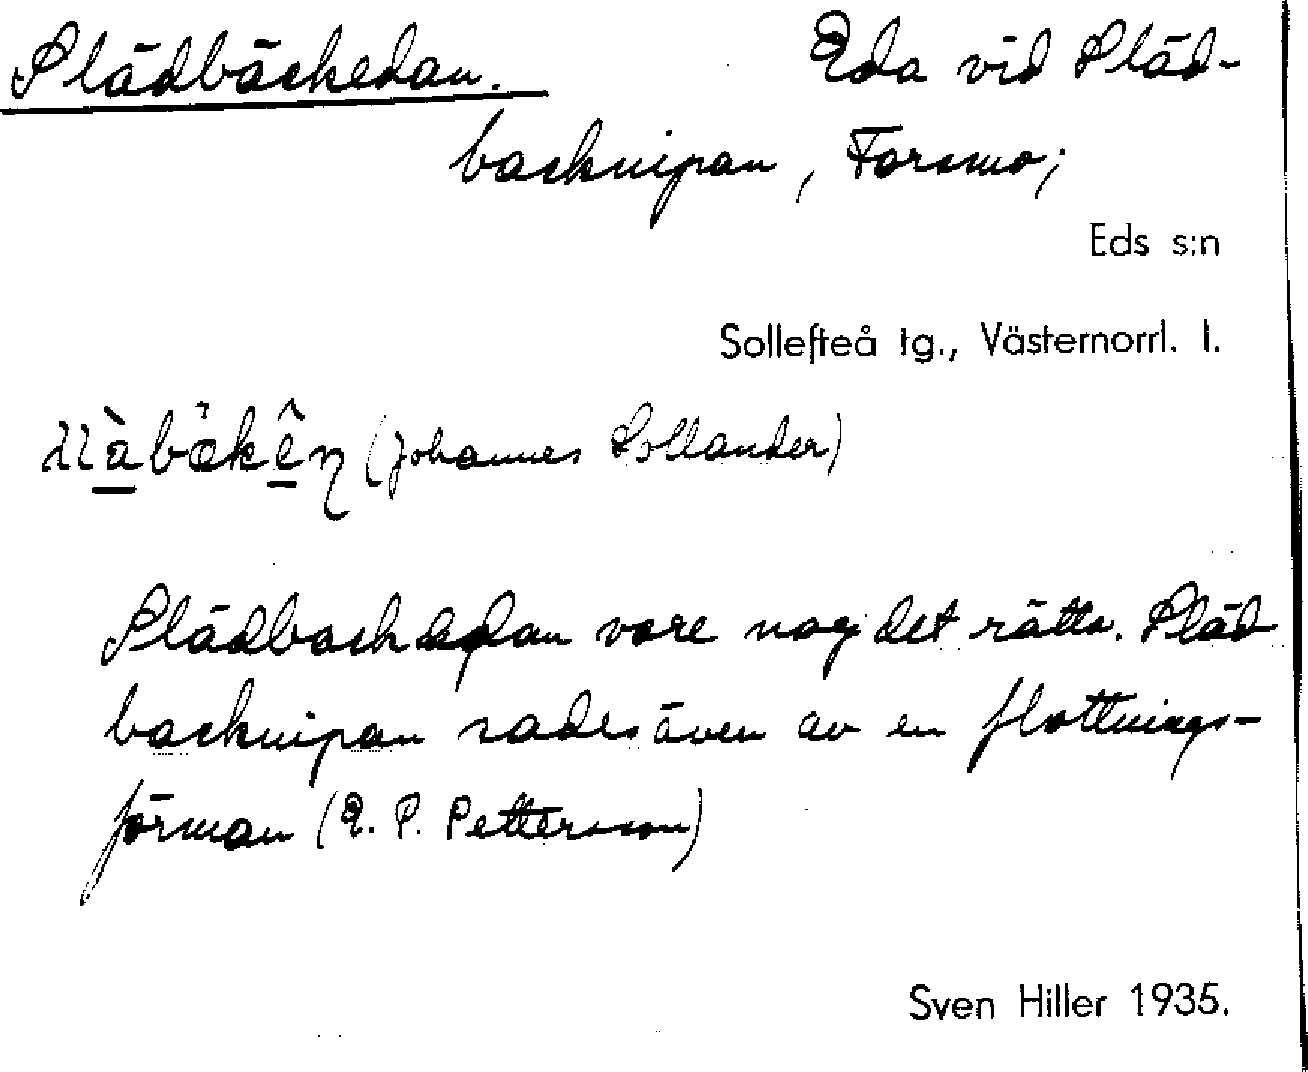 Slädbäckedan. Eda vid Släd-
backnipan, Forsmo;
Eds s:n
Sollefteå tg., Västernorrl. l.
(Johannes Sollander)
Slädbackedan vore nog det rätta. Släd
backnipan sades även av en flottnings-
förman (E. P. Pettersson)
Sven Hiller 1935.